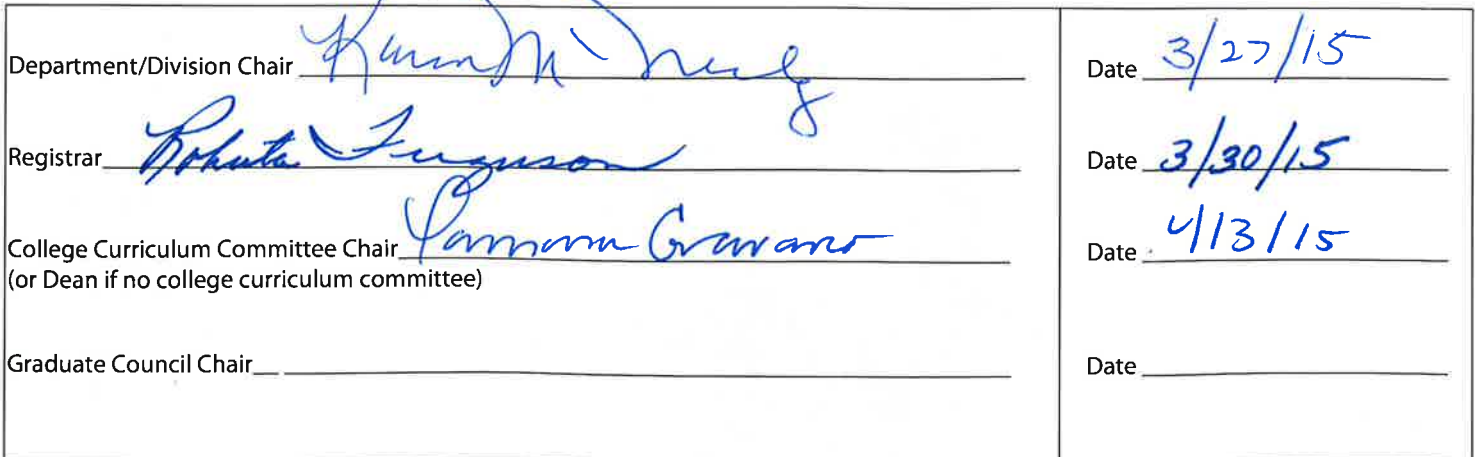 Department/Division Chair Date 3/27/15
Registrar Roberta Ferguson Date 3/30/15
College Curriculum Committee Chair Date 4/13/15
(or Dean if no college curriculum committee)
Graduate Council Chair Date